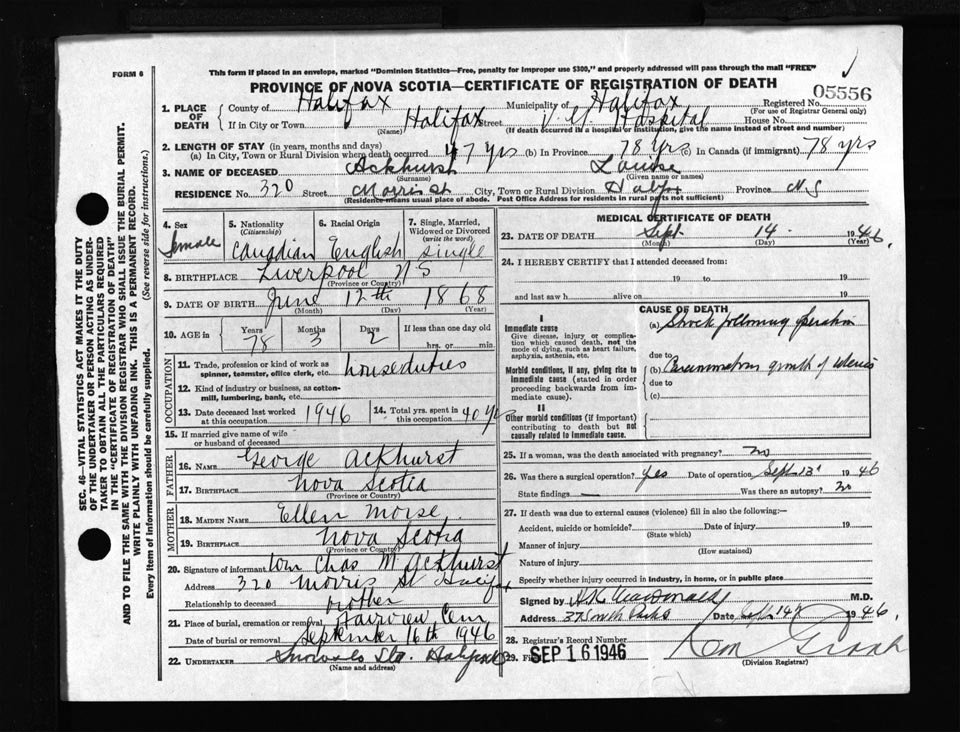 FORM 6
This form if placed in an envelope, marked "Dominion Statistics—Free, penalty for improper use $300," and properly addressed will pass through the mail "FREE"
PROVINCE OF NOVA SCOTIA—CERTIFICATE OF REGISTRATION OF DEATH
05556
1. PLACE OF DEATH
County of Halifax
Municipality of Halifax
Registered No.
(For use of Registrar General only)
If in City or Town Halifax Street V. G. Hospital House No.
(Name) (If death occurred in a hospital or institution, give the name instead of street and number)
2. LENGTH OF STAY (in years, months and days)
(a) In City, Town or Rural Division where death occurred 47 yrs (b) In Province 78 Yrs (c) In Canada (if immigrant) 78 yrs
3. NAME OF DECEASED Ackhurst Louise
(Surname) (Given name or names)
RESIDENCE No. 320 Street Morris St City, Town or Rural Division Halfx Province N.S
(Residence means usual place of abode. Post Office Address for residents in rural parts not sufficient)
4. Sex
female
5. Nationality
(Citizenship)
Canadian
6. Racial Origin
English
7. Single, Married, Widowed or Divorced
(write the word)
Single
8. BIRTHPLACE Liverpool N S
(Province or Country)
9. DATE OF BIRTH June 12th 1868
(Month) (Day) (Year)
10. AGE in
Years Months Days If less than one day old
78 3 2 hrs. or min.
OCCUPATION
11. Trade, profession or kind of work as spinner, teamster, office clerk, etc. houseduties
12. Kind of industry or business, as cotton-mill, lumbering, bank, etc.
13. Date deceased last worked at this occupation 1946
14. Total yrs. spent in this occupation 40 yrs
15. If married give name of wife or husband of deceased
FATHER
16. NAME George Ackhurst
17. BIRTHPLACE Nova Scotia
(Province or Country)
MOTHER
18. MAIDEN NAME Ellen Morse
19. BIRTHPLACE Nova Scotia
(Province or Country)
20. Signature of informant Chas M Ackhurst
Address 320 Morris St Halifax
Relationship to deceased brother
21. Place of burial, cremation or removal Fairview Cem
Date of burial or removal September 16th 1946
22. UNDERTAKER Snow & Co Ltd. Halifax
(Name and address)
MEDICAL CERTIFICATE OF DEATH
23. DATE OF DEATH Sept. 14 1946
(Month) (Day) (Year)
24. I HEREBY CERTIFY that I attended deceased from:
19 to 19
and last saw h alive on 19
I
Immediate cause
Give disease, injury or complication which caused death, not the mode of dying, such as heart failure, asphyxia, asthenia, etc.
Morbid conditions, if any, giving rise to immediate cause (stated in order proceeding backwards from immediate cause).
II
Other morbid conditions (if important) contributing to death but not causally related to immediate cause.
CAUSE OF DEATH
(a) Shock following operation
due to
(b) growth of uterus
due to
(c)
25. If a woman, was the death associated with pregnancy? no
26. Was there a surgical operation? yes Date of operation Sept 13 1946
State findings — Was there an autopsy? no
27. If death was due to external causes (violence) fill in also the following:—
Accident, suicide or homicide? Date of injury 19
(State which)
Manner of injury
(How sustained)
Nature of injury
Specify whether injury occurred in industry, in home, or in public place
Signed by MacDonald M.D.
Address 37 South Park Date Sept 14 1946
28. Registrar's Record Number
29. SEP 16 1946
(Division Registrar)
SEC. 46—VITAL STATISTICS ACT MAKES IT THE DUTY OF THE UNDERTAKER OR PERSON ACTING AS UNDERTAKER TO OBTAIN ALL THE PARTICULARS REQUIRED IN THE "CERTIFICATE OF REGISTRATION OF DEATH" AND TO FILE THE SAME WITH THE DIVISION REGISTRAR WHO SHALL ISSUE THE BURIAL PERMIT.
WRITE PLAINLY WITH UNFADING INK. THIS IS A PERMANENT RECORD.
Every item of information should be carefully supplied. (See reverse side for instructions.)